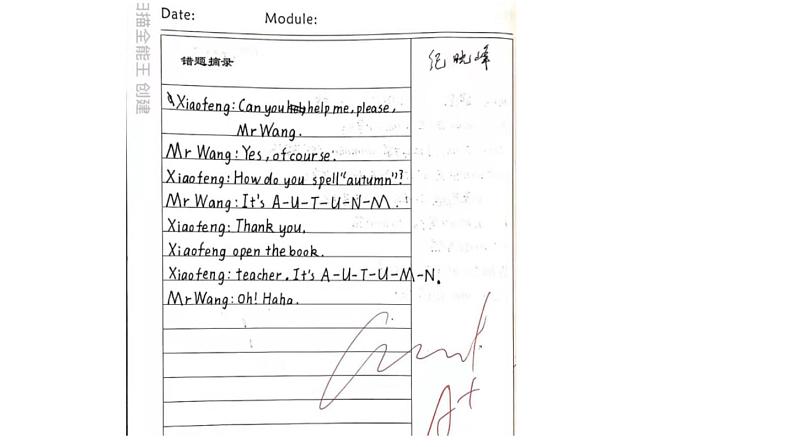 Date: Module:
扫描全能王 创建
错题摘录
纪晓峰
Xiaofeng: Can you help me, please,
Mr Wang.
Mr Wang: Yes, of course.
Xiaofeng: How do you spell "autumn"?
Mr Wang: It's A-U-T-U-N-M.
Xiaofeng: Thank you.
Xiaofeng open the book.
Xiaofeng: teacher. It's A-U-T-U-M-N.
Mr Wang: Oh! Haha.
Good!
A+